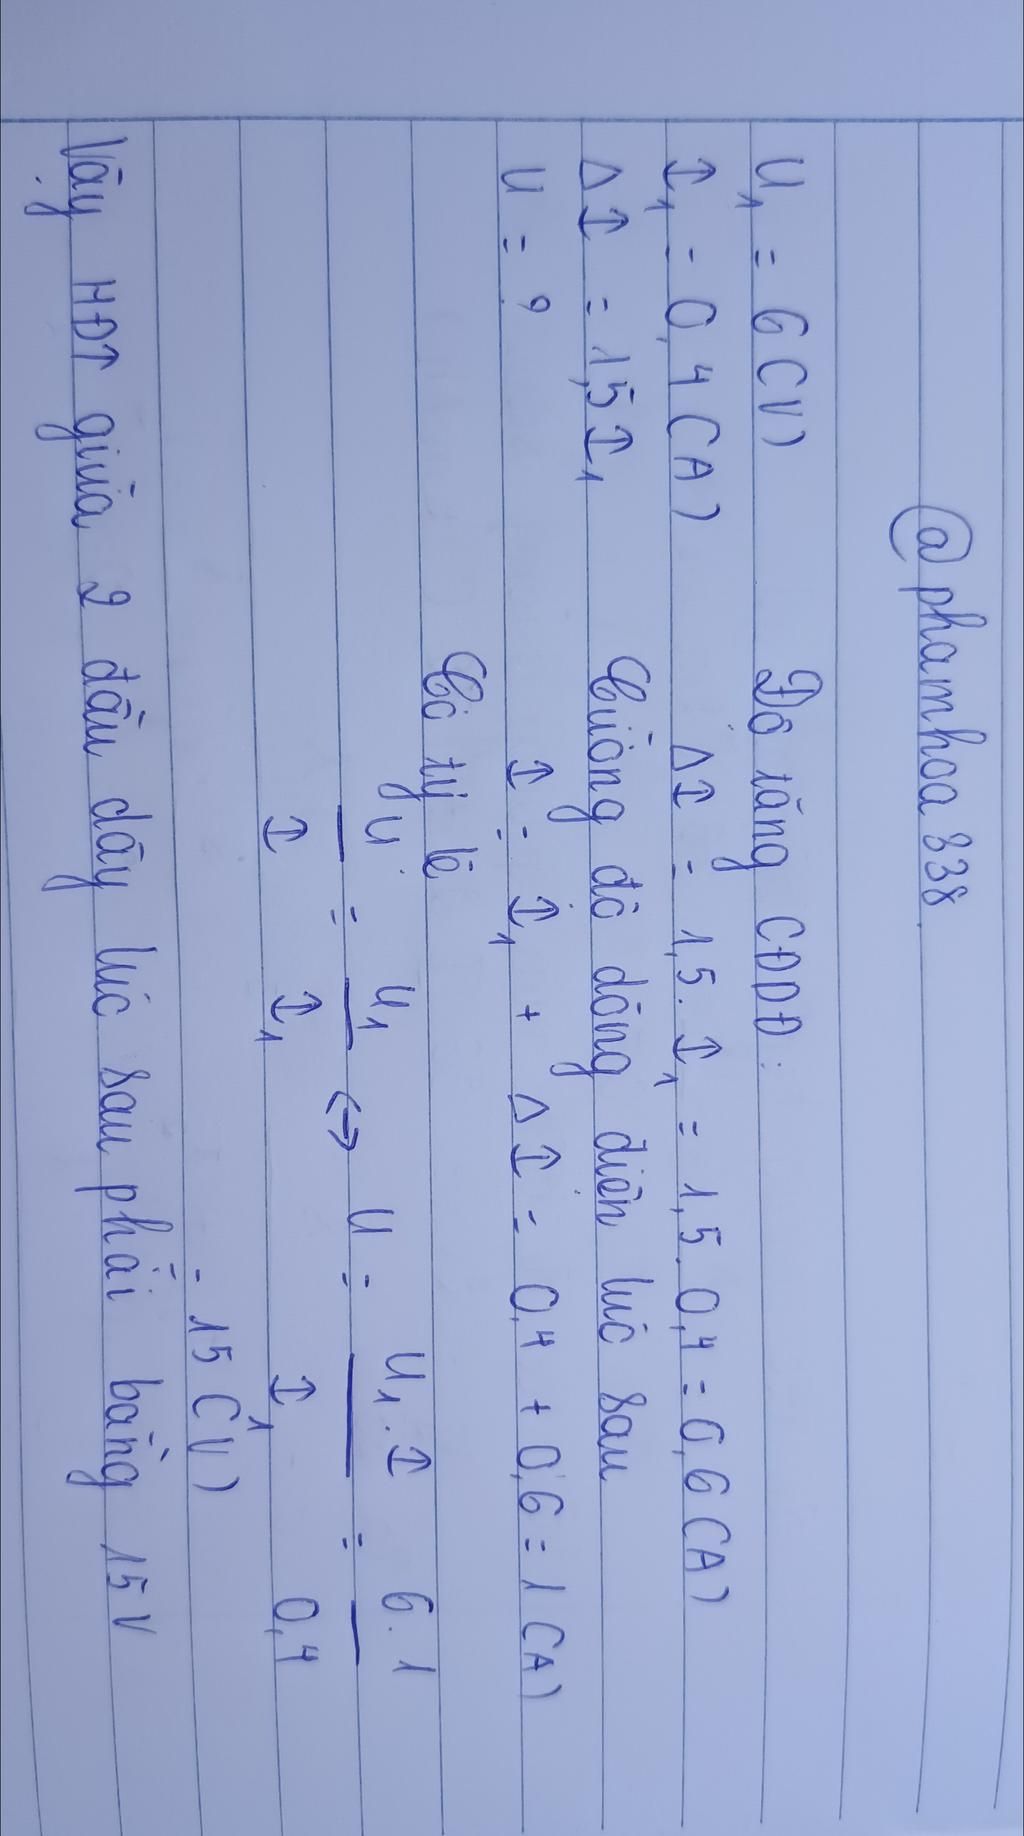 @phamhoa338
U₁ = 6(V)
I₁ = 0,4(A)
ΔI = 1,5I₁
U = ?
Độ tăng CĐDĐ:
ΔI = 1,5. I₁ = 1,5. 0,4 = 0,6(A)
Cường độ dòng điện lúc sau
I = I₁ + ΔI = 0,4 + 0,6 = 1(A)
Có tỷ lệ
U/I = U₁/I₁ <-> U = U₁.I/I₁ = 6.1/0,4
= 15(V)
Vậy HĐT giữa 2 đầu dây lúc sau phải bằng 15V